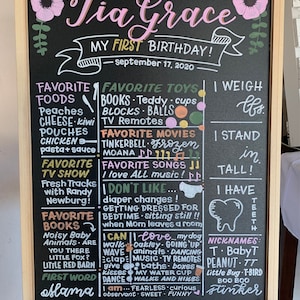 Tia Grace
MY FIRST BIRTHDAY!
september 17, 2020
FAVORITE FOODS
Peaches
CHEESE · kiwi
POUCHES
CHICKEN
pasta + sauce
FAVORITE TV SHOW
Fresh Tracks
with Randy
Newburg!
FAVORITE BOOKS
Noisy Baby
Animals · ARE
YOU THERE
LITTLE FOX?
LITTLE RED BARN
FIRST WORD
Mama
FAVORITE TOYS
BOOKS · Teddy · cups
BLOCKS · BALLS
TV Remotes
FAVORITE MOVIES
TINKERBELL · frozen
MOANA
FAVORITE SONGS
I love ALL music!
I DON'T LIKE...
diaper changes!
GETTING DRESSED FOR
BEDTIME · sitting still
when Mom washes MY HAIR
I CAN
I love
walk
GOING UP
DANCING
MUSIC · TV REMOTES
baths
kisses
WATER CUP
DANCE
WALKS AND HIKES
I am... FEARLESS · curious
observant · SWEET · FUNNY
I WEIGH
lbs.
I STAND
in.
TALL!
I HAVE
TEETH
NICKNAMES:
T · Baby T
PEANUT · T
Little Bug · T-BIRD
BOO BOO